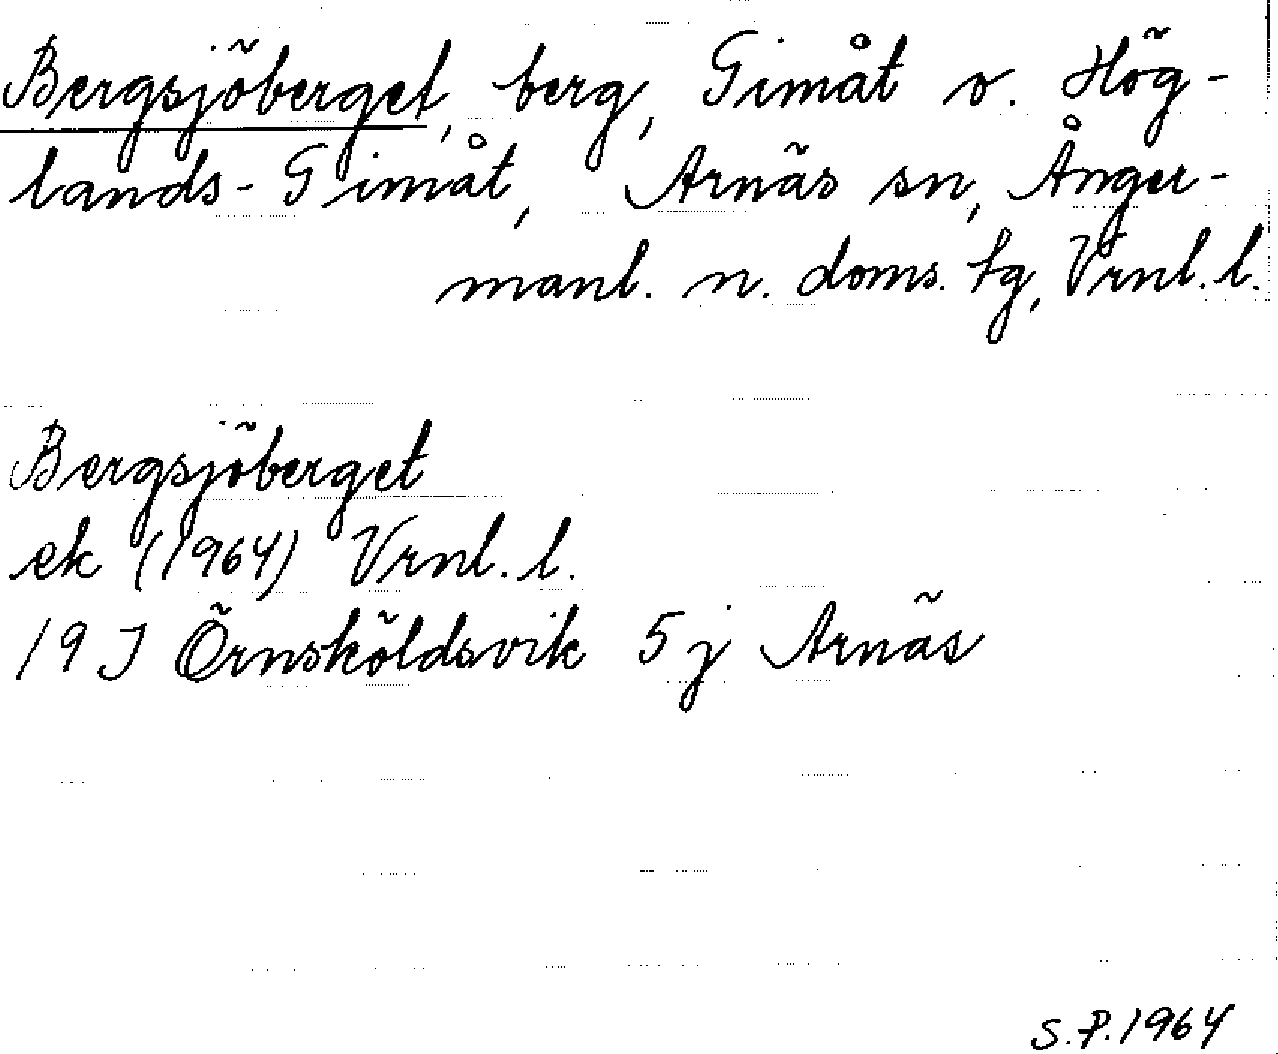 Bergsjöberget, berg, Gimåt o. Hög-
lands-Gimåt, Arnäs sn, Ånger-
manl. n. doms. tg, Vrnl. l.
Bergsjöberget
ek (1964) Vrnl. l.
19J Örnsköldsvik 5j Arnäs
S.P.1964